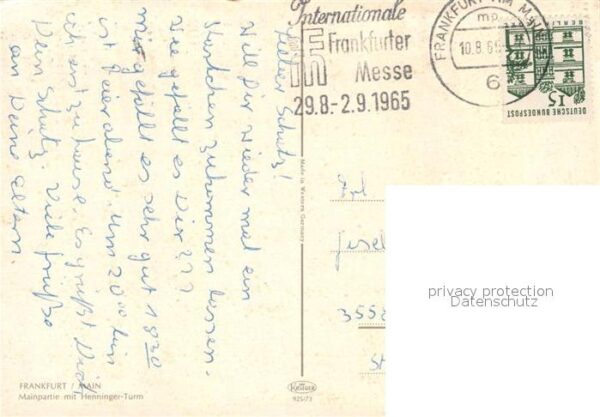 Internationale
Frankfurter
Messe
29.8.-2.9.1965
FRANKFURT AM MAIN
mp
10.8.65
6
15
DEUTSCHE BUNDESPOST
BERLIN
Lieber Schatz!
Will Dir wieder mal ein
Kärtchen zukommen lassen.
Wie gefällt es Dir???
mir gefällt es sehr gut 19³⁰
ist Feierabend. um 20⁰⁰ bin
ich erst zuhause. Es grüßt Dich
Dein Schatz. Viele Grüße
an Deine Eltern.
Made in Western Germany
Frl
Gisel
3558
privacy protection
Datenschutz
FRANKFURT / MAIN
Mainpartie mit Henninger-Turm
925/73